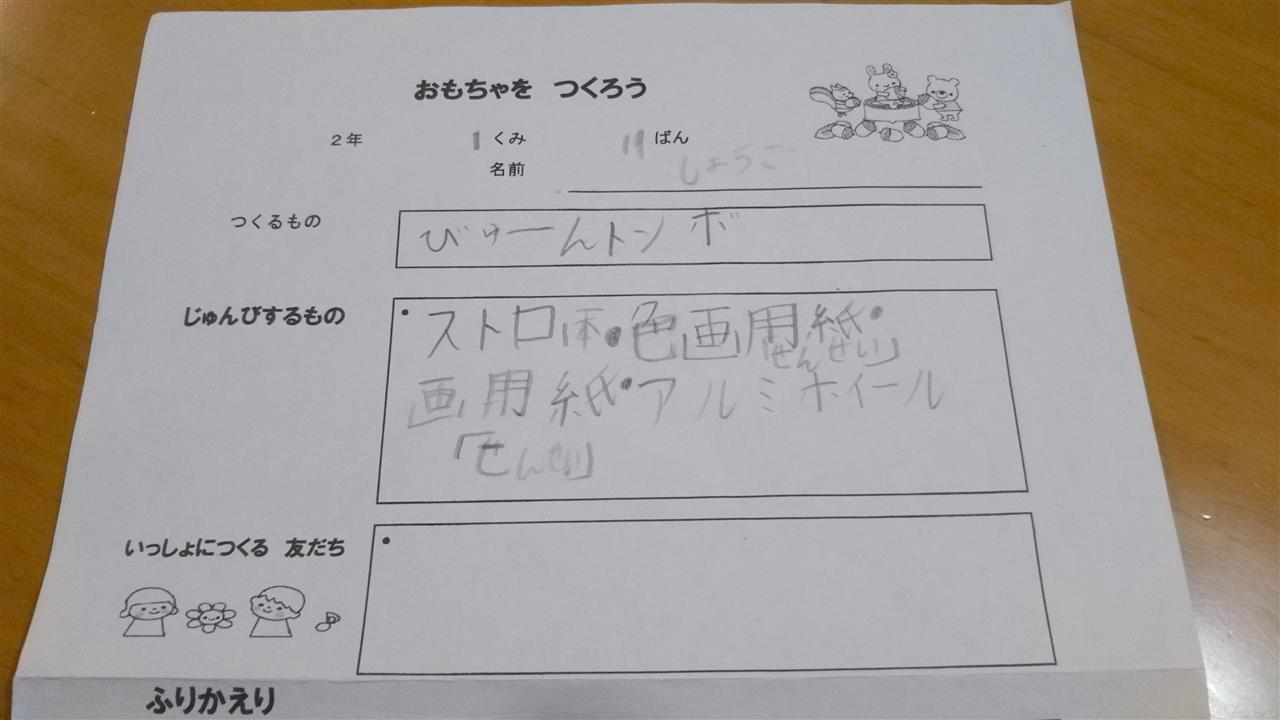 おもちゃを つくろう
2年 1くみ 19ばん
名前 しょうご
つくるもの
びゅーんトンボ
じゅんびするもの
・ストロー本・色画用紙・
「せんせい」
画用紙・アルミホイール
「せんせい」
いっしょにつくる 友だち
・
ふりかえり